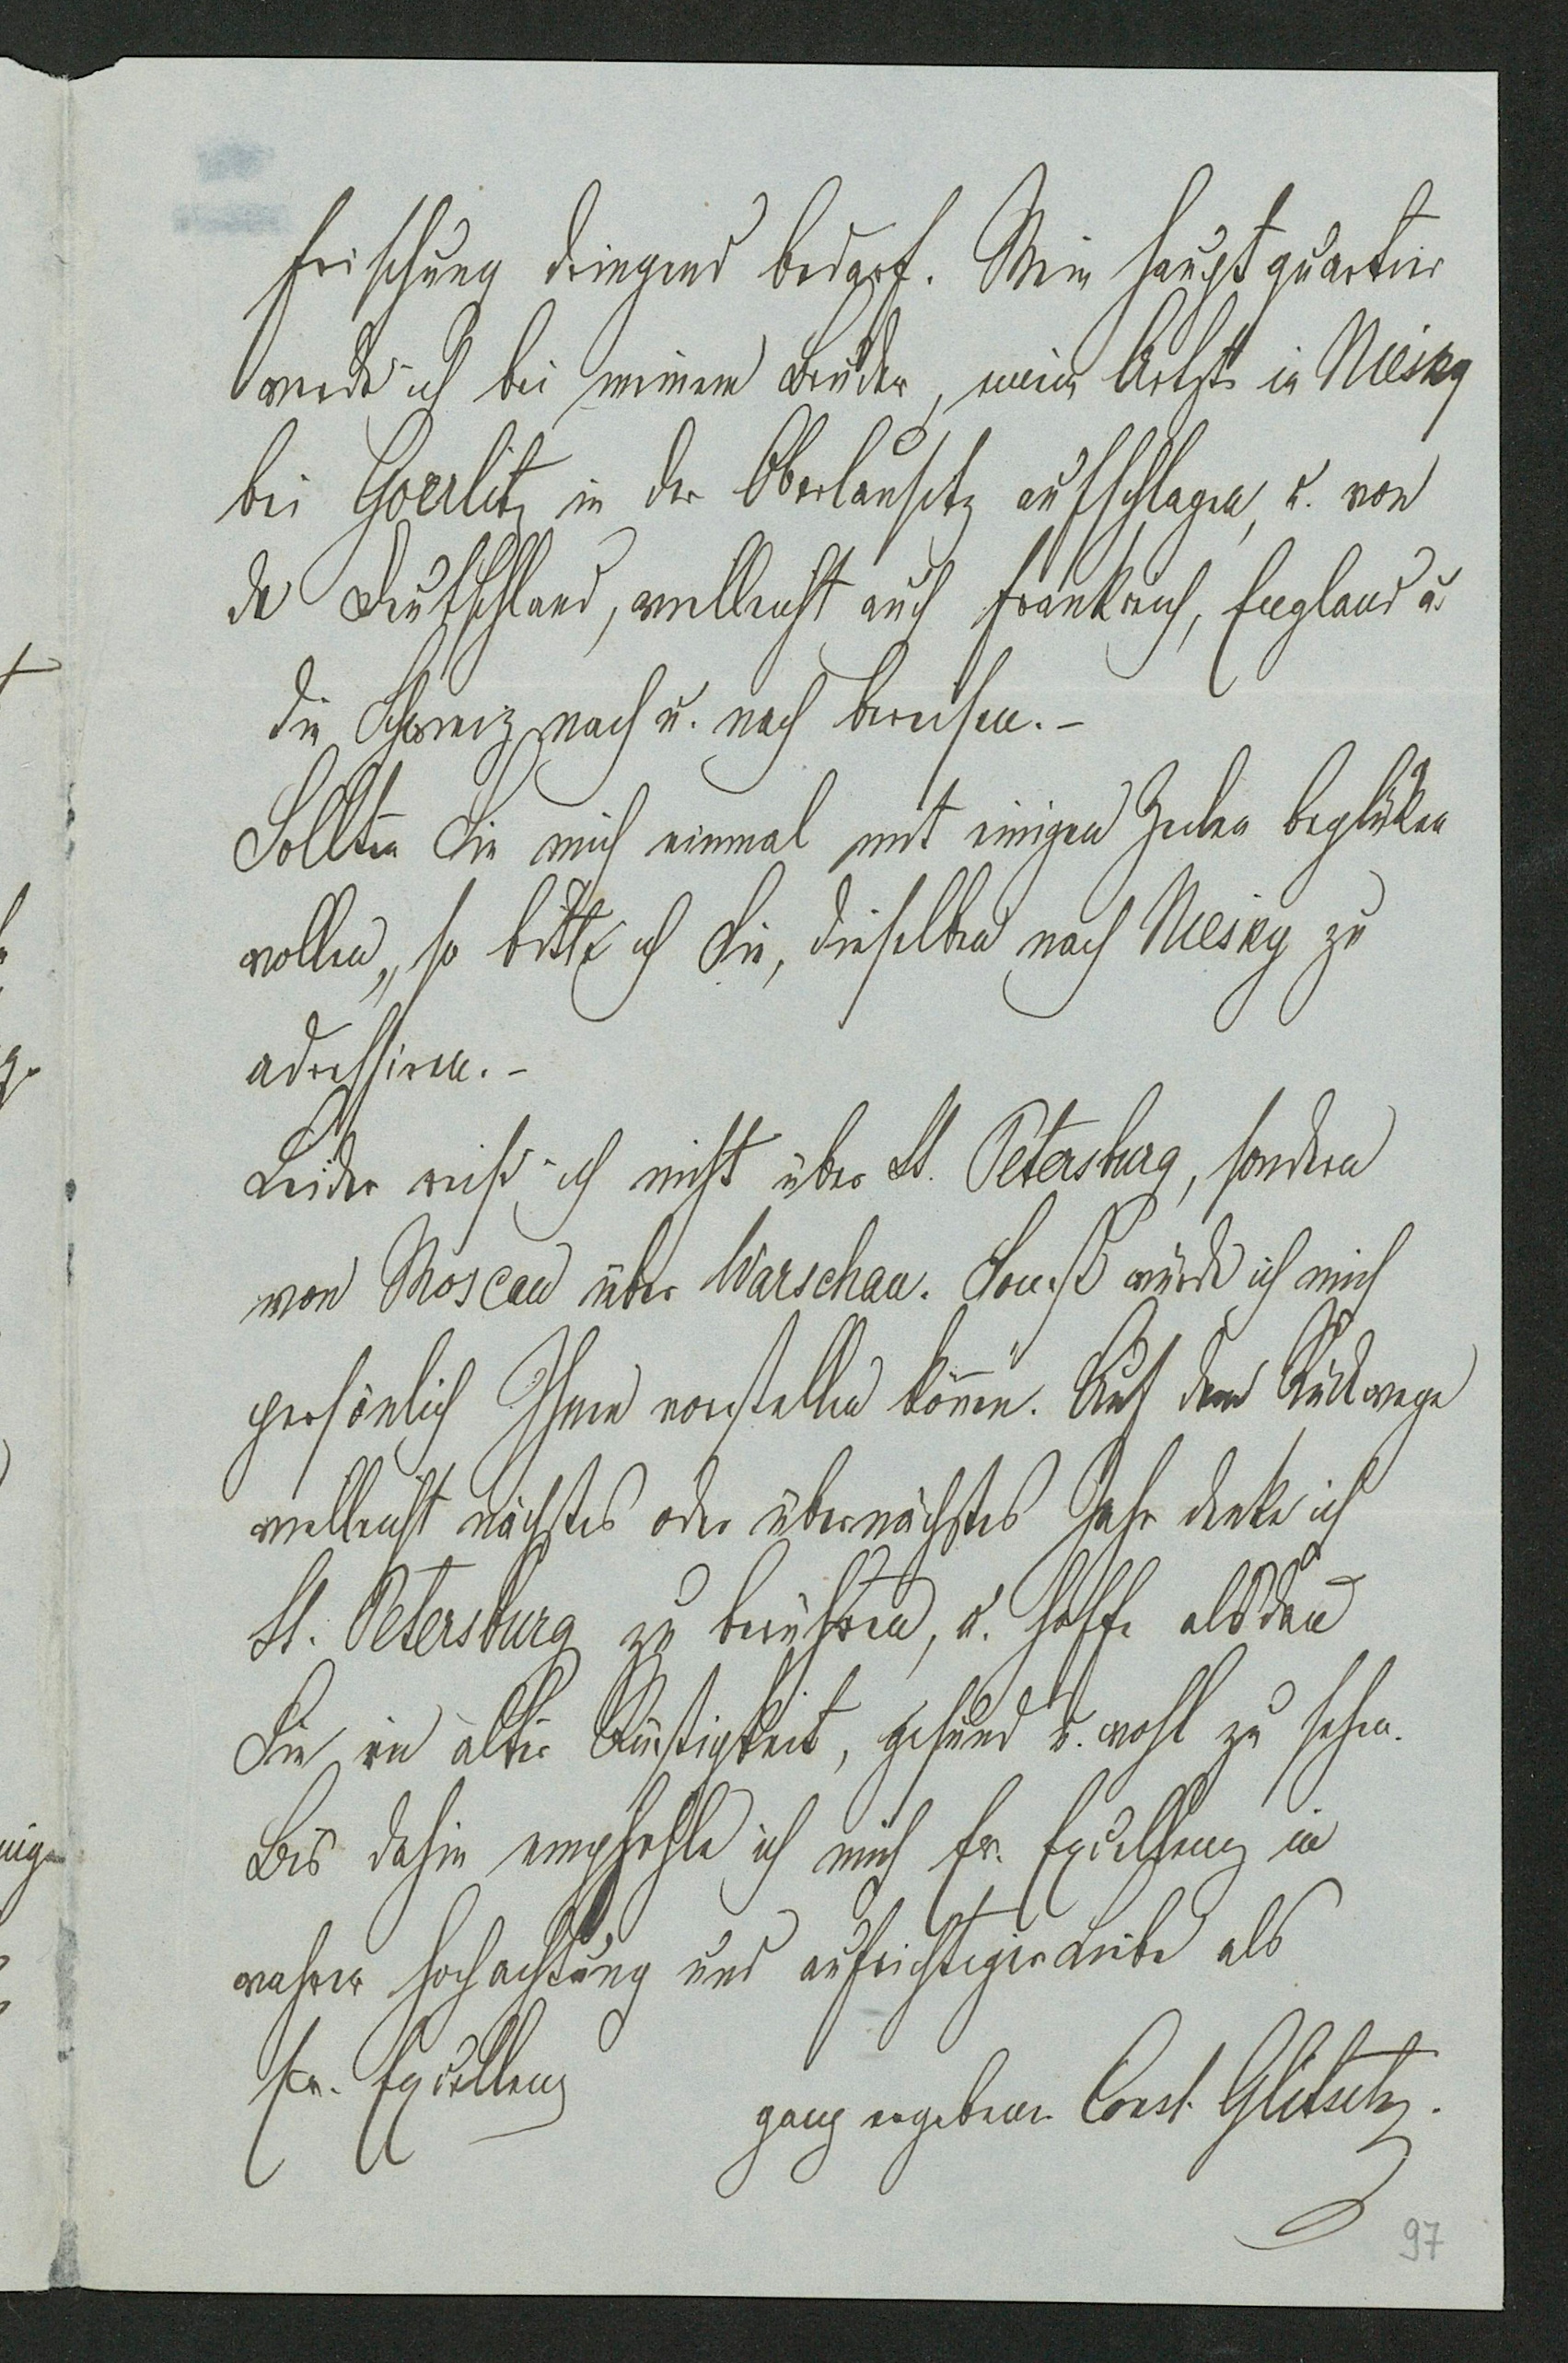 frischung dringend bedarf. Mein Hauptquartier
werde ich bei meinem Bruder, einem Arzte in Niesky
bei Goerlitz in der Oberlausitz aufschlagen, u. von
da Deutschland, vielleicht auch Frankreich, England u.
die Schweiz nach u. nach bereisen. –
Sollten Sie mich einmal mit einigen Zeilen beglücken
wollen, so bitte ich Sie, dieselben nach Niesky zu
adressiren. –
Leider reise ich nicht über St. Petersburg, sondern
von Moscau über Warschau. Sonst würde ich mich
persönlich Ihnen vorstellen können. Auf dem Rückwege
vielleicht nächstes oder übernächstes Jahr denke ich
St. Petersburg zu berühren, u. hoffe alsdan̄
Sie in alter Rüstigkeit, gesund u. wohl zu sehen.
Bis dahin empfehle ich mich Ew. Excellenz in
wahrer Hochachtung und aufrichtiger Liebe als
Ew. Excellenz
ganz ergebener Const. Glitsch.
97